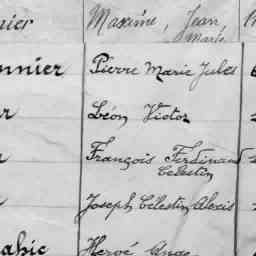 nier Maxime, Jean
Marie
onnier Pierre Marie Jules
r Léon Victor
François Ferdinand
Célestin
Joseph Célestin Alexis
ahic Hervé Ange